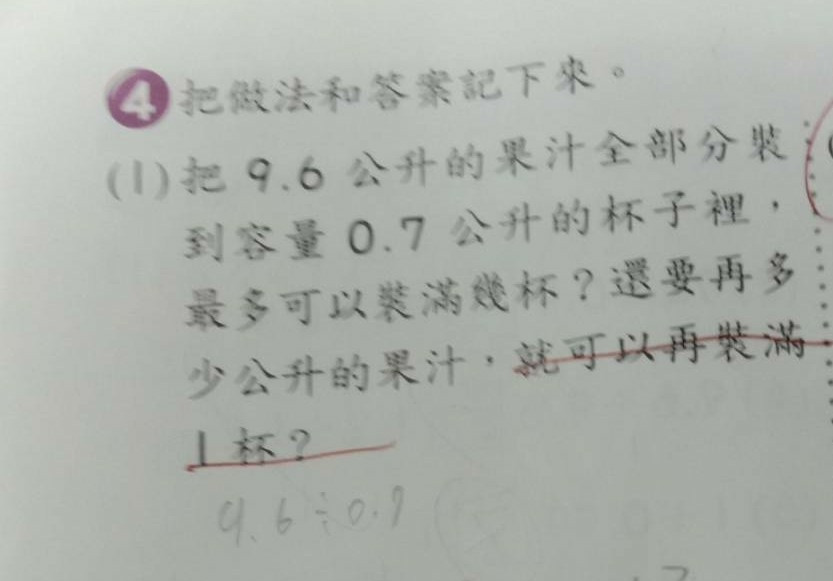 4 把做法和答案記下來。
(1)把 9.6 公升的果汁全部分裝
到容量 0.7 公升的杯子裡，
最多可以裝滿幾杯？還要再多
少公升的果汁，就可以再裝滿
1 杯？
9.6÷0.7